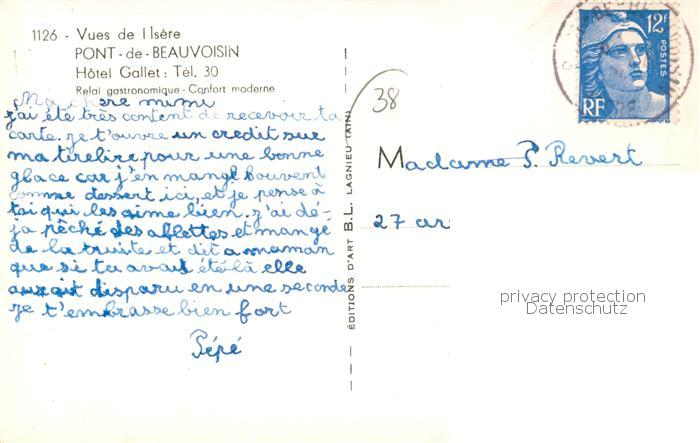 1126 - Vues de l'Isère
PONT-de-BEAUVOISIN
Hôtel Gallet : Tél. 30
Relai gastronomique - Confort moderne
Ma chère mimi
j'ai été très content de recevoir ta
carte. je t'ouvre un credit sur
ma tirelire pour une bonne
glace car j'en mange souvent
comme dessert ici, et je pense à
toi qui les aime bien. j'ai dé-
ja pêché des ablettes et mangé
de la truite et dit a maman
que si tu avais été là elle
aurait disparu en une seconde
je t'embrasse bien fort
Pépé
ÉDITIONS D'ART B.L. LAGNIEU (AIN)
38
12F
POSTES
RF
Madame P. Revert
27 ar
privacy protection
Datenschutz